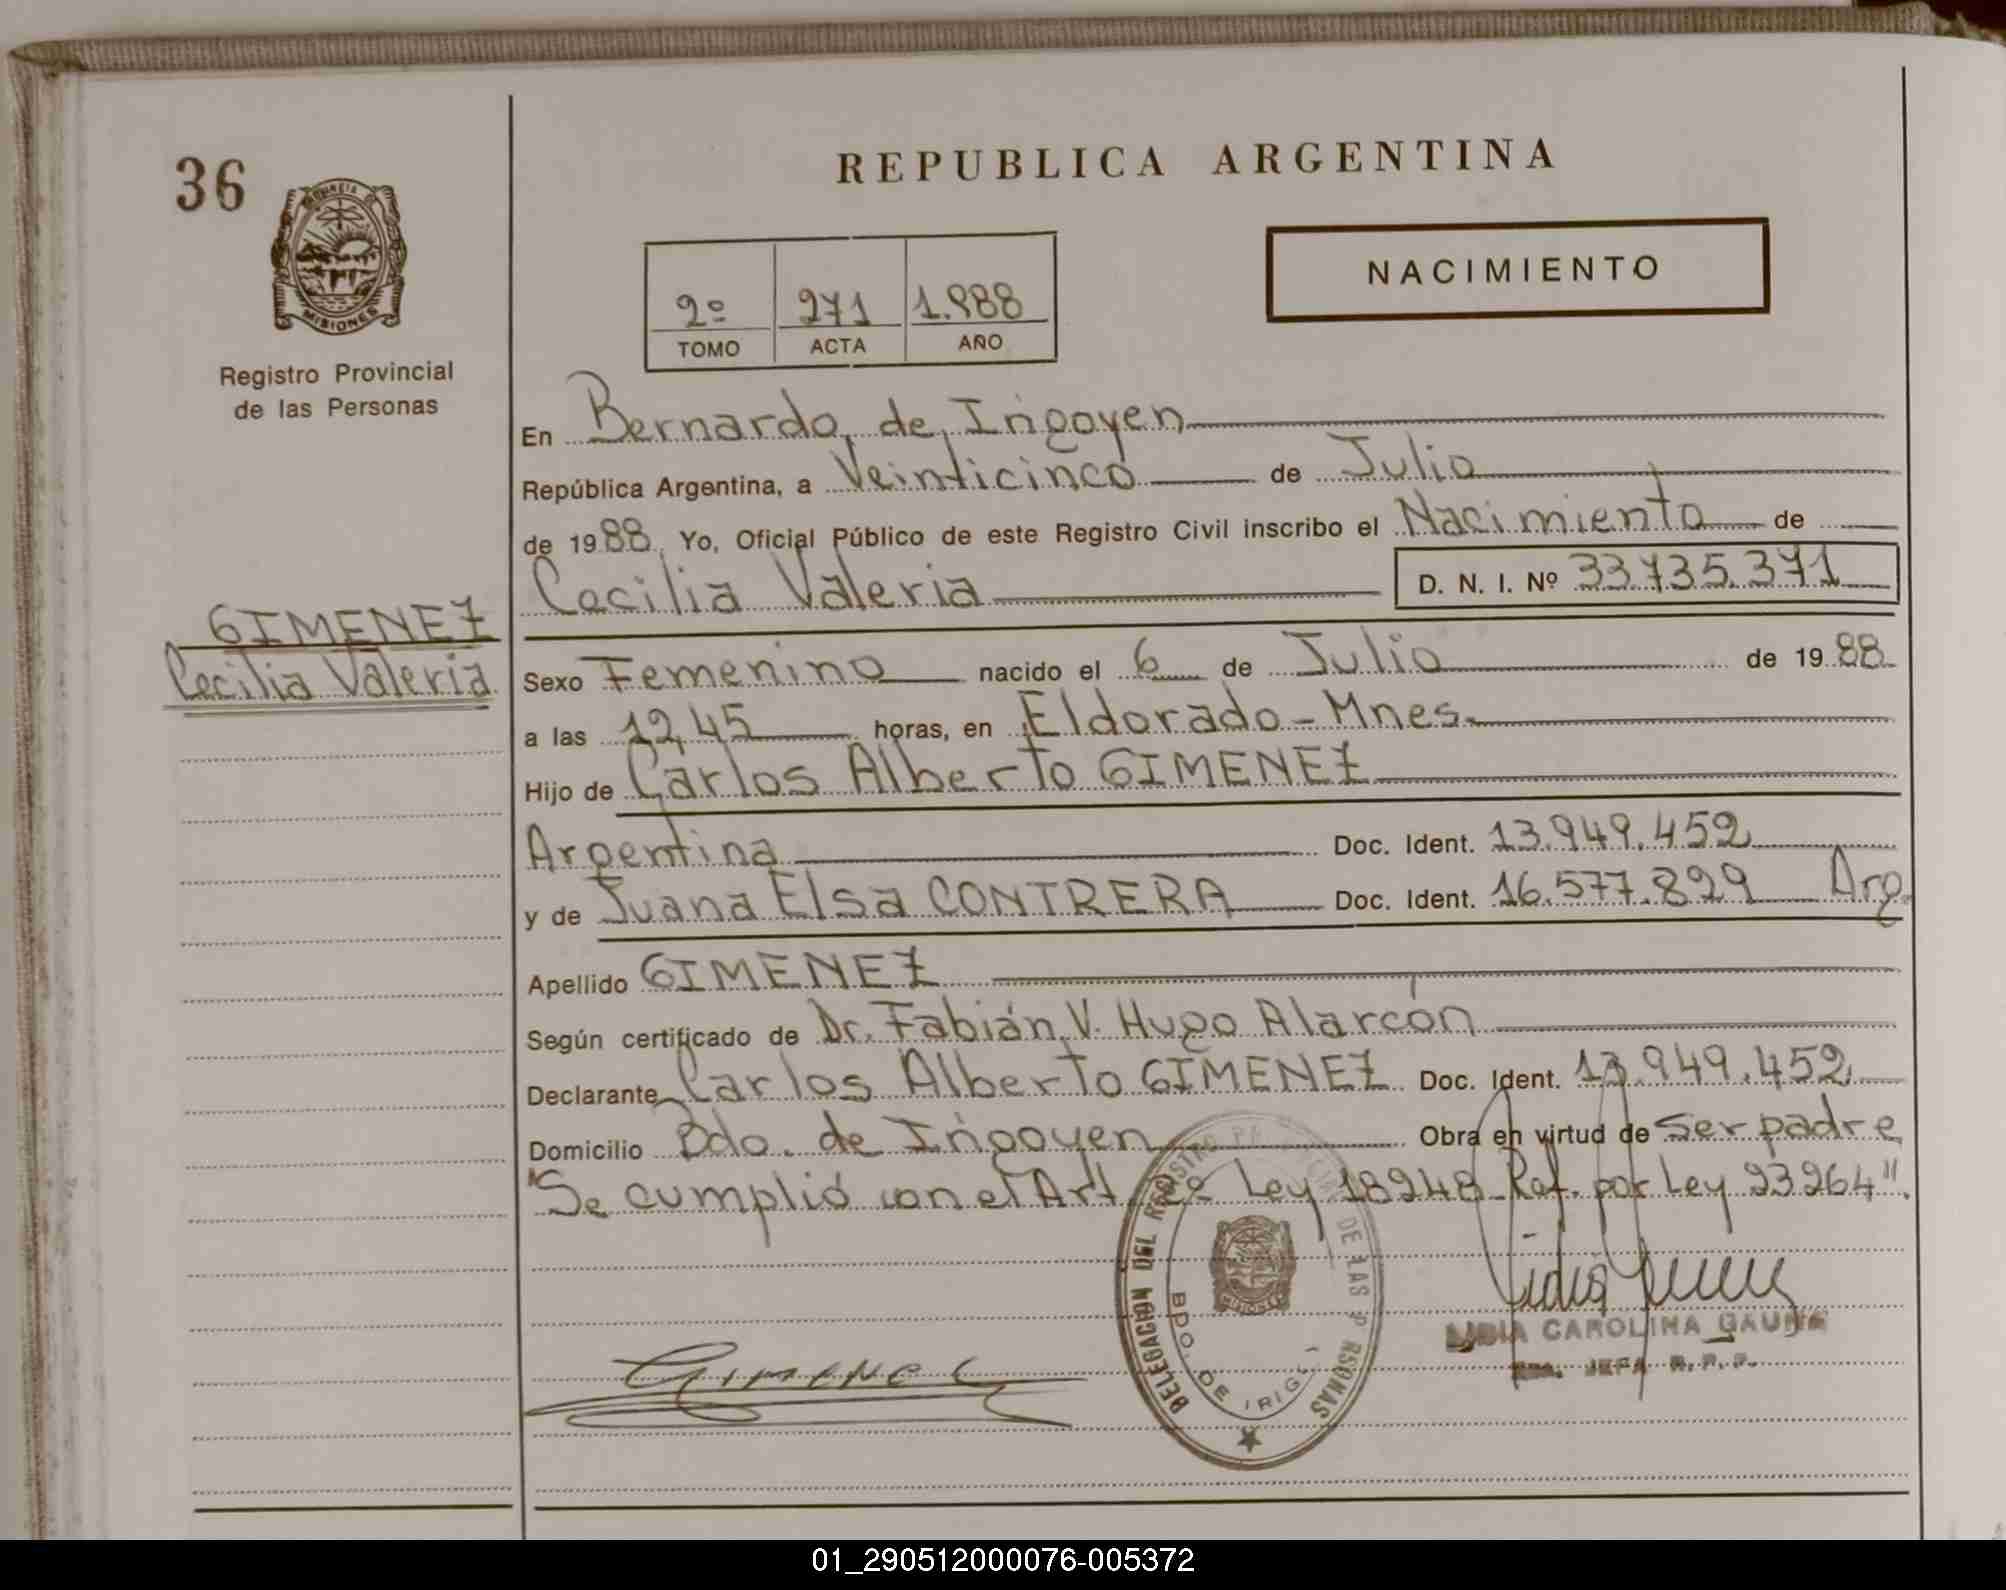 36
PROVINCIA DE
MISIONES
Registro Provincial
de las Personas
GIMENEZ
Cecilia Valeria
REPUBLICA ARGENTINA
NACIMIENTO
2º 271 1.988
TOMO ACTA AÑO
En Bernardo de Irigoyen
República Argentina, a Veinticinco de Julio
de 1988 Yo, Oficial Público de este Registro Civil inscribo el Nacimiento de
Cecilia Valeria D. N. I. Nº 33.735.371
Sexo Femenino nacido el 6 de Julio de 1988
a las 12,45 horas, en Eldorado - Mnes.
Hijo de Carlos Alberto GIMENEZ
Argentina Doc. Ident. 13.949.452
y de Juana Elsa CONTRERA Doc. Ident. 16.577.829 Arg.
Apellido GIMENEZ
Según certificado de Dr. Fabián V. Hugo Alarcón
Declarante Carlos Alberto GIMENEZ Doc. Ident. 13.949.452
Domicilio Bdo. de Irigoyen Obra en virtud de Ser padre
"Se cumplió con el Art. Ley 18248 Ref. por Ley 23264".
DELEGACION DEL REGISTRO DE LAS PERSONAS
BDO. DE IRIG
MISIONES
Gimenez
Lidia
LIDIA CAROLINA GAUNA
JEFA R.P.P.
01_290512000076-005372